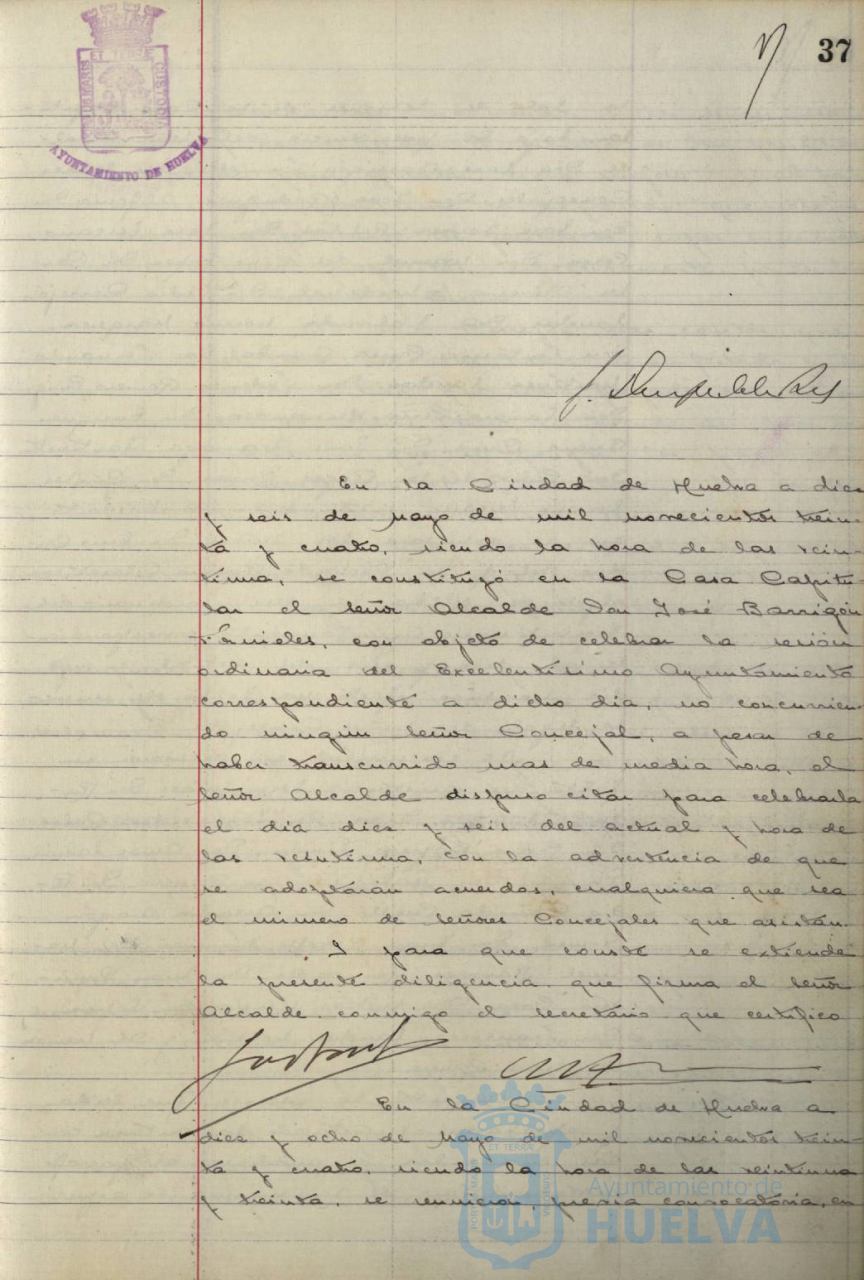 37
PORTUS MARIS ET TERRE CUSTODIA
AYUNTAMIENTO DE HUELVA
En la Ciudad de Huelva a diez
y seis de Mayo de mil novecientos trein-
ta y cuatro, siendo la hora de las vein-
tiuna, se constituyó en la Casa Capitu-
lar el señor Alcalde Don José Barrigón
Fornieles, con objeto de celebrar la sesión
ordinaria del Excelentísimo Ayuntamiento
correspondiente a dicho día, no concurrien-
do ningún señor Concejal, a pesar de
haber transcurrido mas de media hora, el
señor Alcalde dispuso citar para celebrarla
el día diez y seis del actual y hora de
las veintiuna, con la advertencia de que
se adoptarán acuerdos, cualquiera que sea
el número de señores Concejales que asistan.
Y para que conste se extiende
la presente diligencia que firma el señor
Alcalde conmigo el secretario que certifico
En la Ciudad de Huelva a
diez y ocho de Mayo de mil novecientos trein-
ta y cuatro, siendo la hora de las veintiuna
y treinta, se reunieron, previa convocatoria, en
Ayuntamiento de
HUELVA